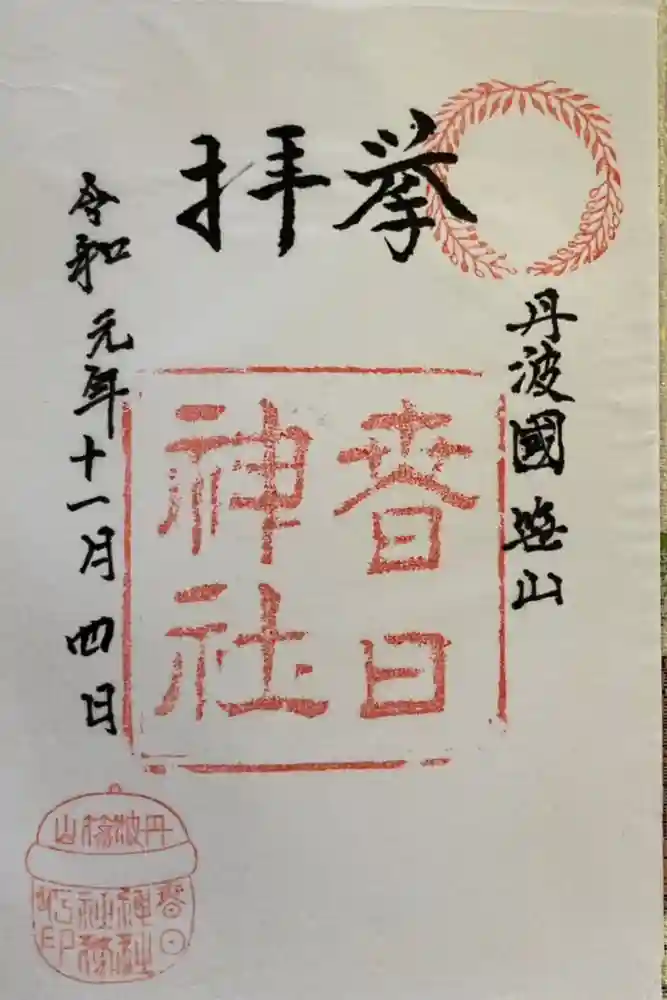 奉拝
丹波國 篠山
春日
神社
令和元年十一月四日
丹波篠山
春日
神社
社務
所印